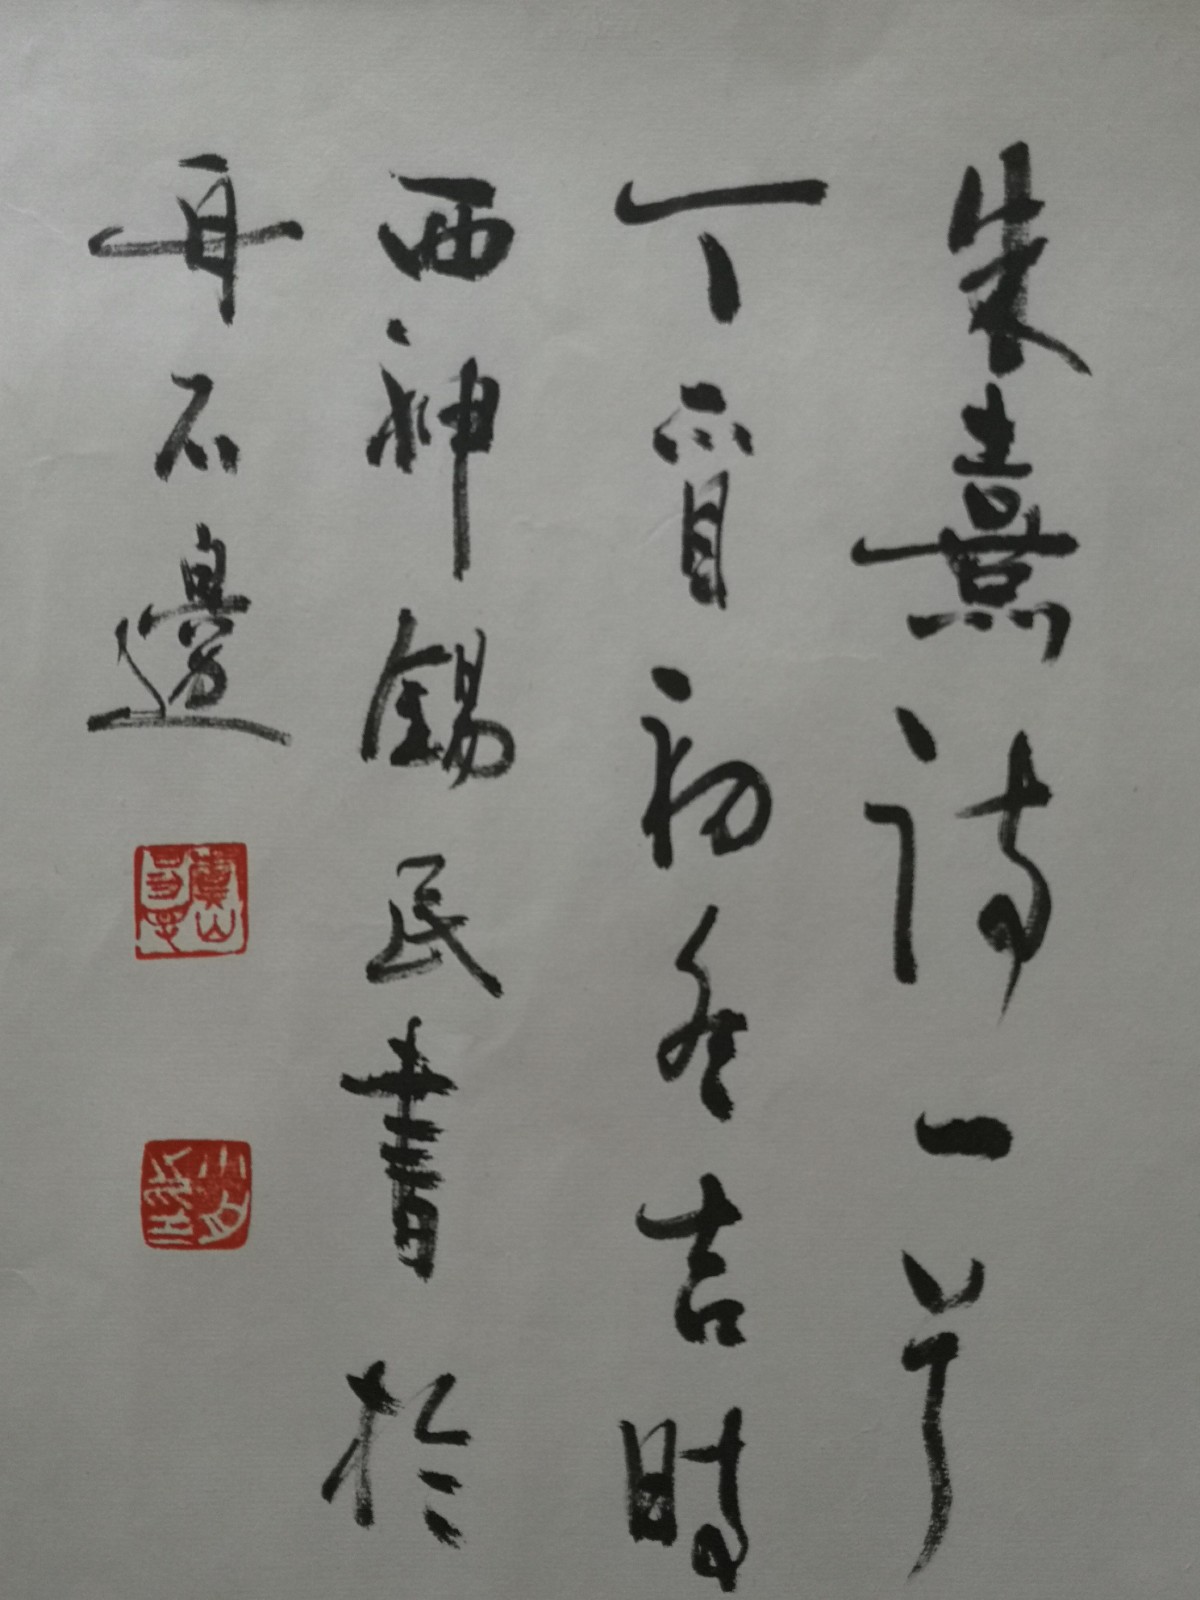 朱熹詩一首
丁酉初冬吉時
西神錫民書於
石邊